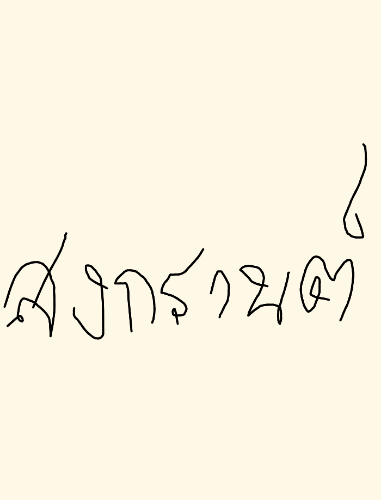 สงกรานต์